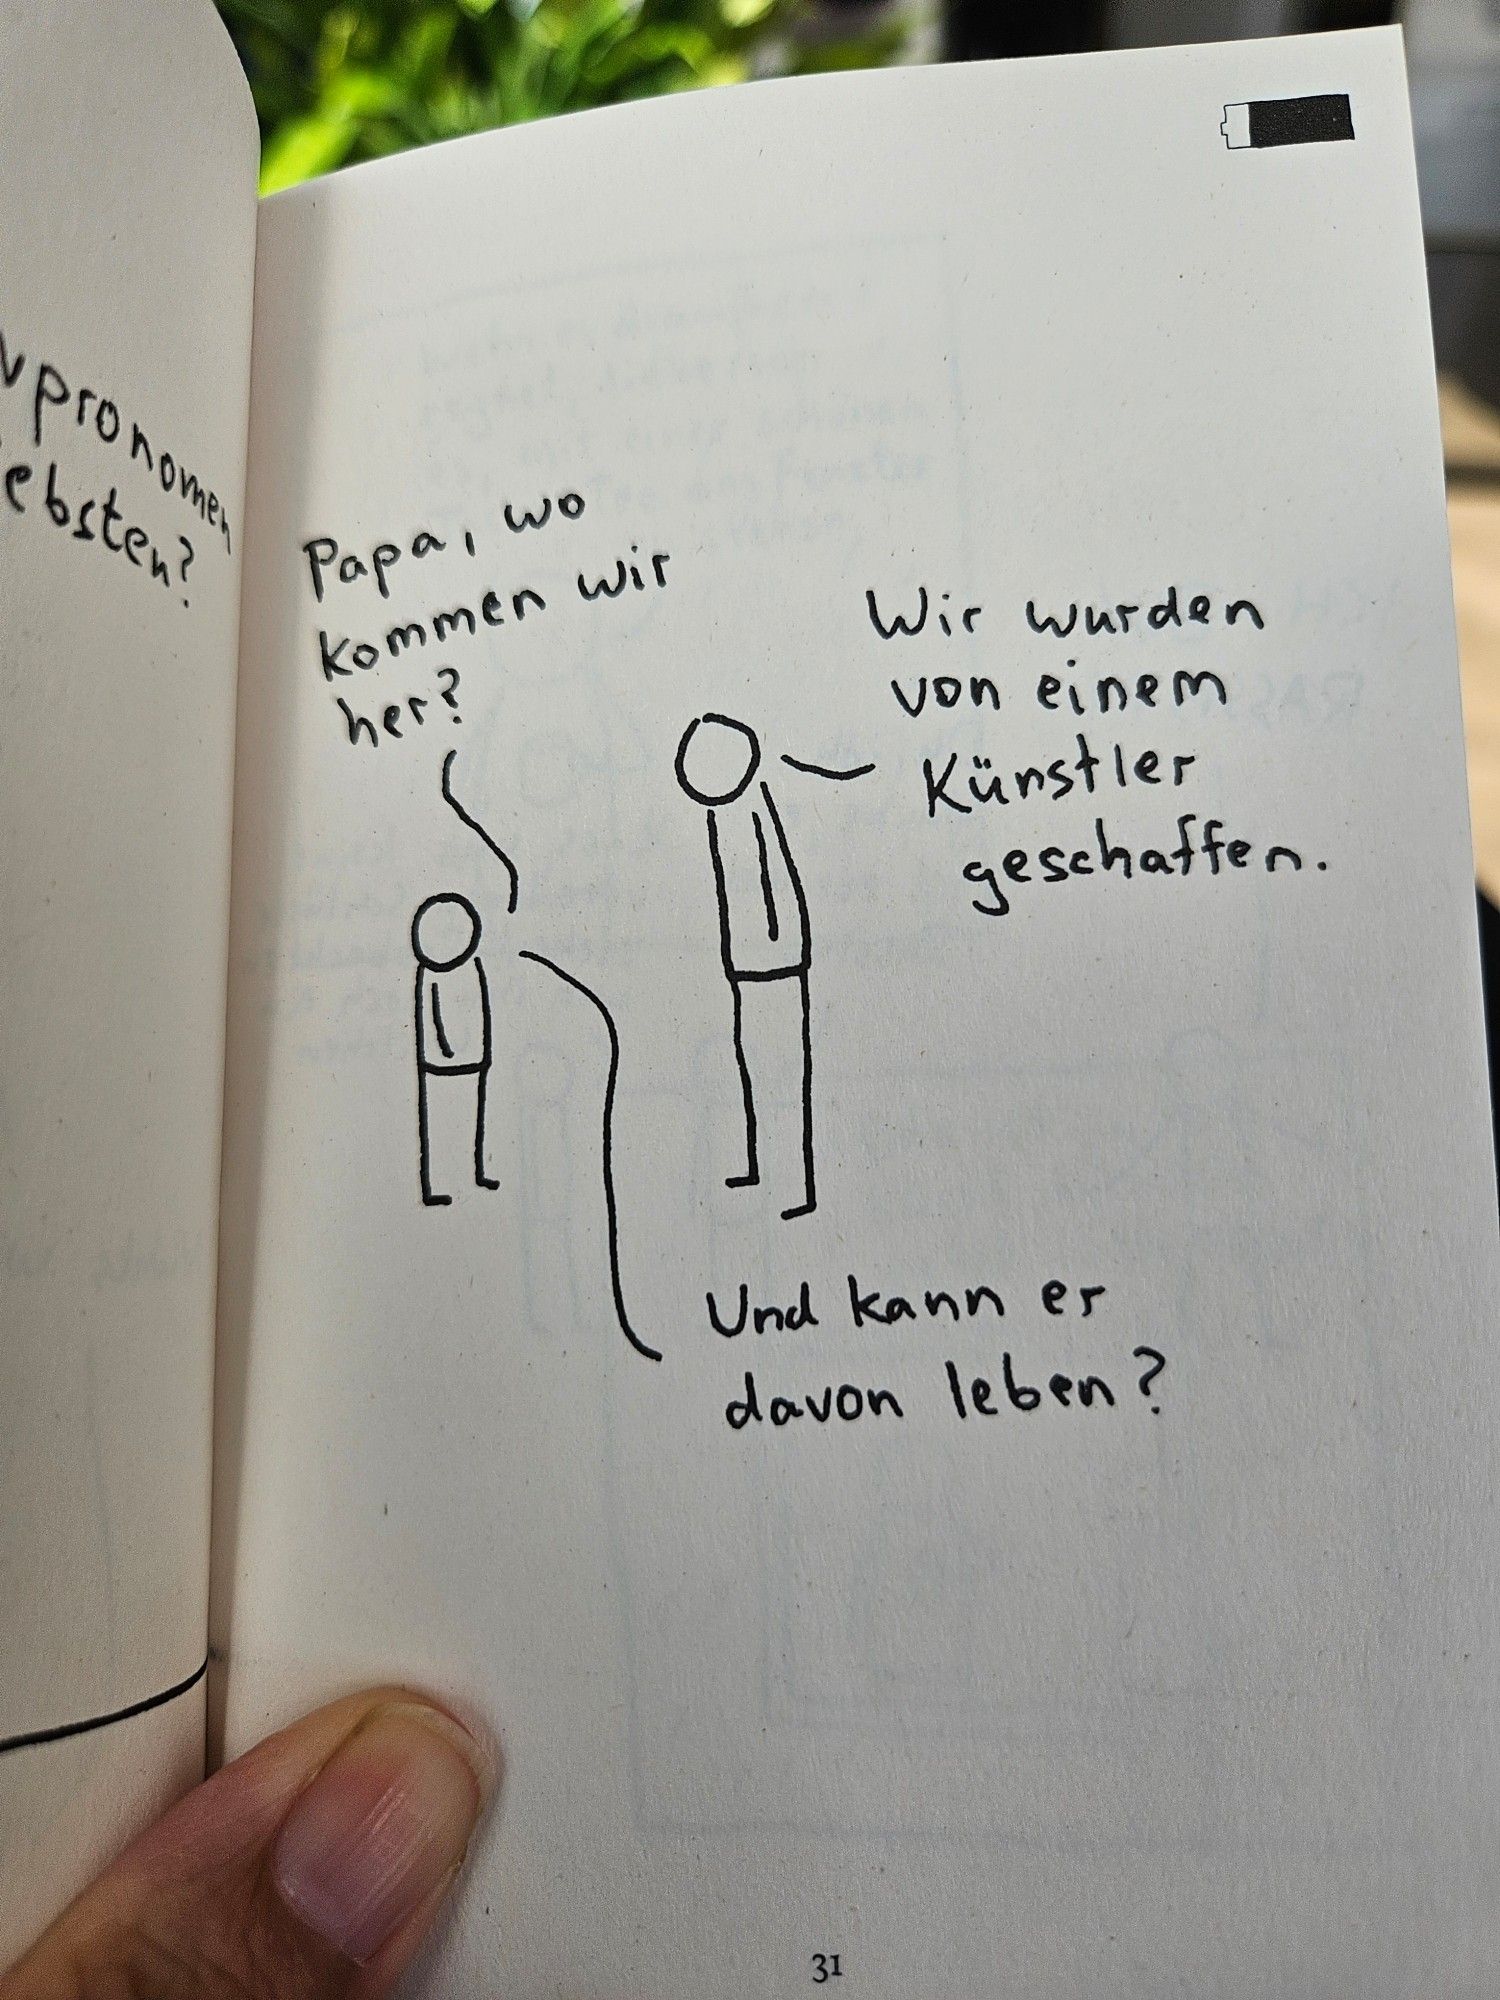 pronomen
ebsten?
Papa, wo
kommen wir
her?
Wir wurden
von einem
Künstler
geschaffen.
Und kann er
davon leben?
31